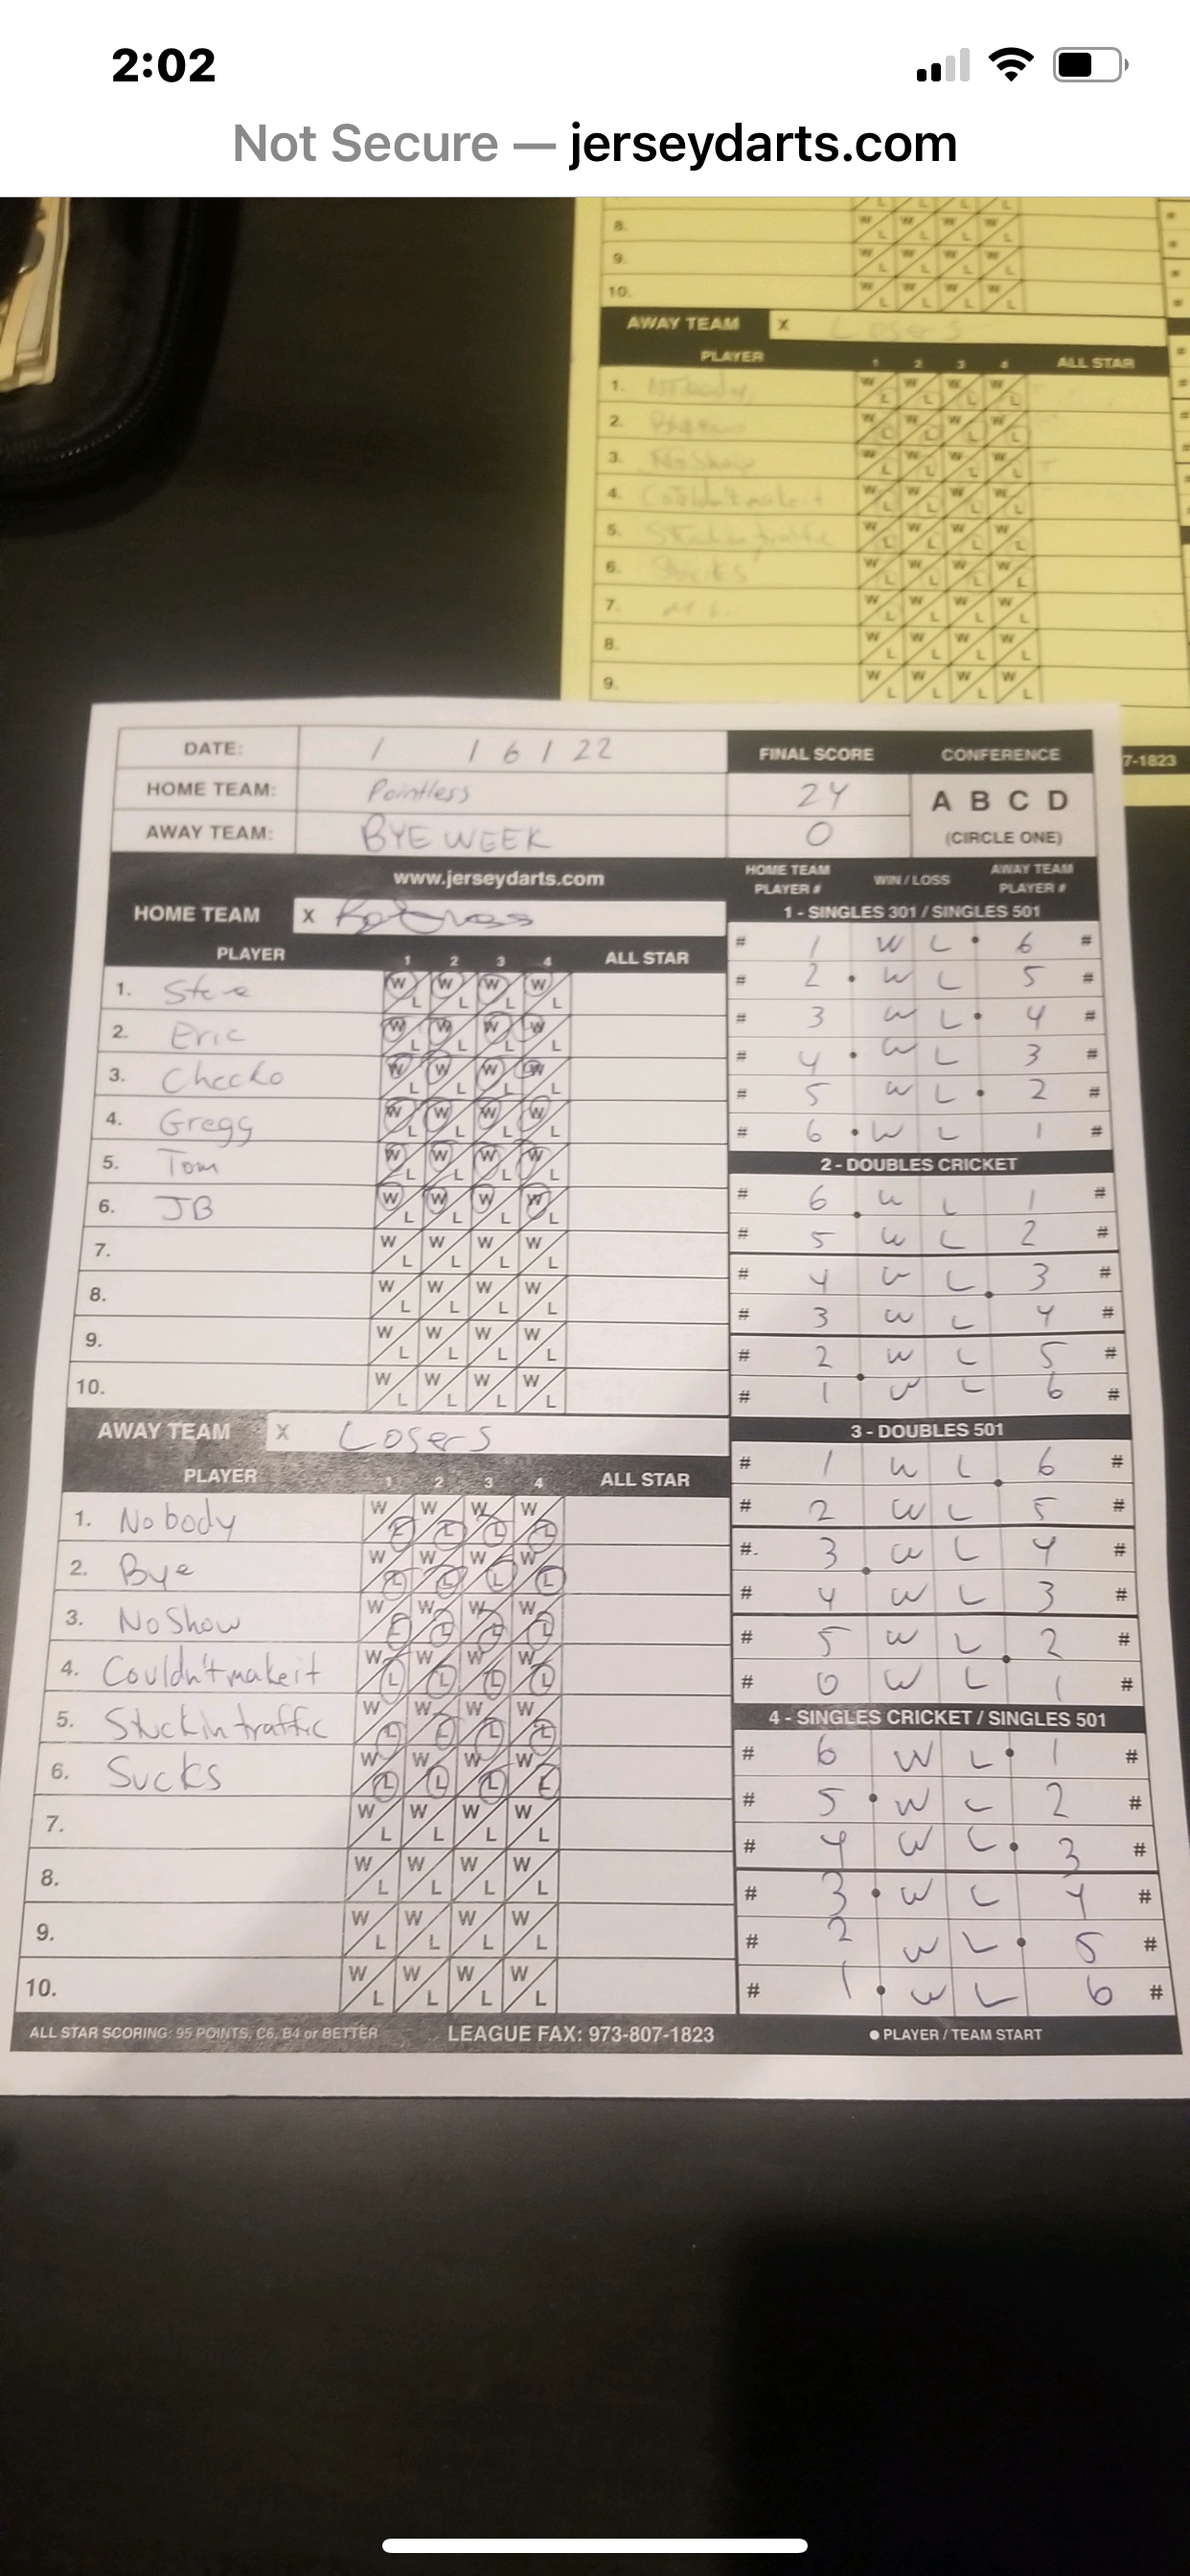 2:02
Not Secure — jerseydarts.com
8. W L W L W L W L
9. W L W L W L W L
10. W L W L W L W L
AWAY TEAM X Losers
PLAYER 1 2 3 4 ALL STAR
1. Nobody W L W L W L W L
2. W L W L W L W L
3. No Show W L W L W L W L
4. Couldn't make it W L W L W L W L
5. Stuck in traffic W L W L W L W L
6. Sucks W L W L W L W L
7. W L W L W L W L
8. W L W L W L W L
9. W L W L W L W L
7-1823
DATE: 1 16 22
HOME TEAM: Pointless
AWAY TEAM: BYE WEEK
FINAL SCORE
24
0
CONFERENCE
A B C D
(CIRCLE ONE)
www.jerseydarts.com
HOME TEAM X
PLAYER 1 2 3 4 ALL STAR
1. Steve W L W L W L W L
2. Eric W L W L W L W L
3. Checko W L W L W L W L
4. Gregg W L W L W L W L
5. Tom W L W L W L W L
6. JB W L W L W L W L
7. W L W L W L W L
8. W L W L W L W L
9. W L W L W L W L
10. W L W L W L W L
AWAY TEAM X Losers
PLAYER 1 2 3 4 ALL STAR
1. Nobody W L W L W L W L
2. Bye W L W L W L W L
3. No Show W L W L W L W L
4. Couldn't make it W L W L W L W L
5. Stuck in traffic W L W L W L W L
6. Sucks W L W L W L W L
7. W L W L W L W L
8. W L W L W L W L
9. W L W L W L W L
10. W L W L W L W L
HOME TEAM PLAYER # WIN / LOSS AWAY TEAM PLAYER #
1 - SINGLES 301 / SINGLES 501
# 1 W L • 6 #
# 2 • W L 5 #
# 3 W L • 4 #
# 4 • W L 3 #
# 5 W L • 2 #
# 6 • W L 1 #
2 - DOUBLES CRICKET
# 6 W L 1 #
# 5 W L 2 #
# 4 W L 3 #
# 3 W L 4 #
# 2 W L 5 #
# 1 W L 6 #
3 - DOUBLES 501
# 1 W L 6 #
# 2 W L 5 #
# 3 W L 4 #
# 4 W L 3 #
# 5 W L 2 #
# 6 W L 1 #
4 - SINGLES CRICKET / SINGLES 501
# 6 W L • 1 #
# 5 • W L 2 #
# 4 W L • 3 #
# 3 • W L 4 #
# 2 W L • 5 #
# 1 • W L 6 #
ALL STAR SCORING: 95 POINTS, C6, B4 or BETTER LEAGUE FAX: 973-807-1823 ● PLAYER / TEAM START